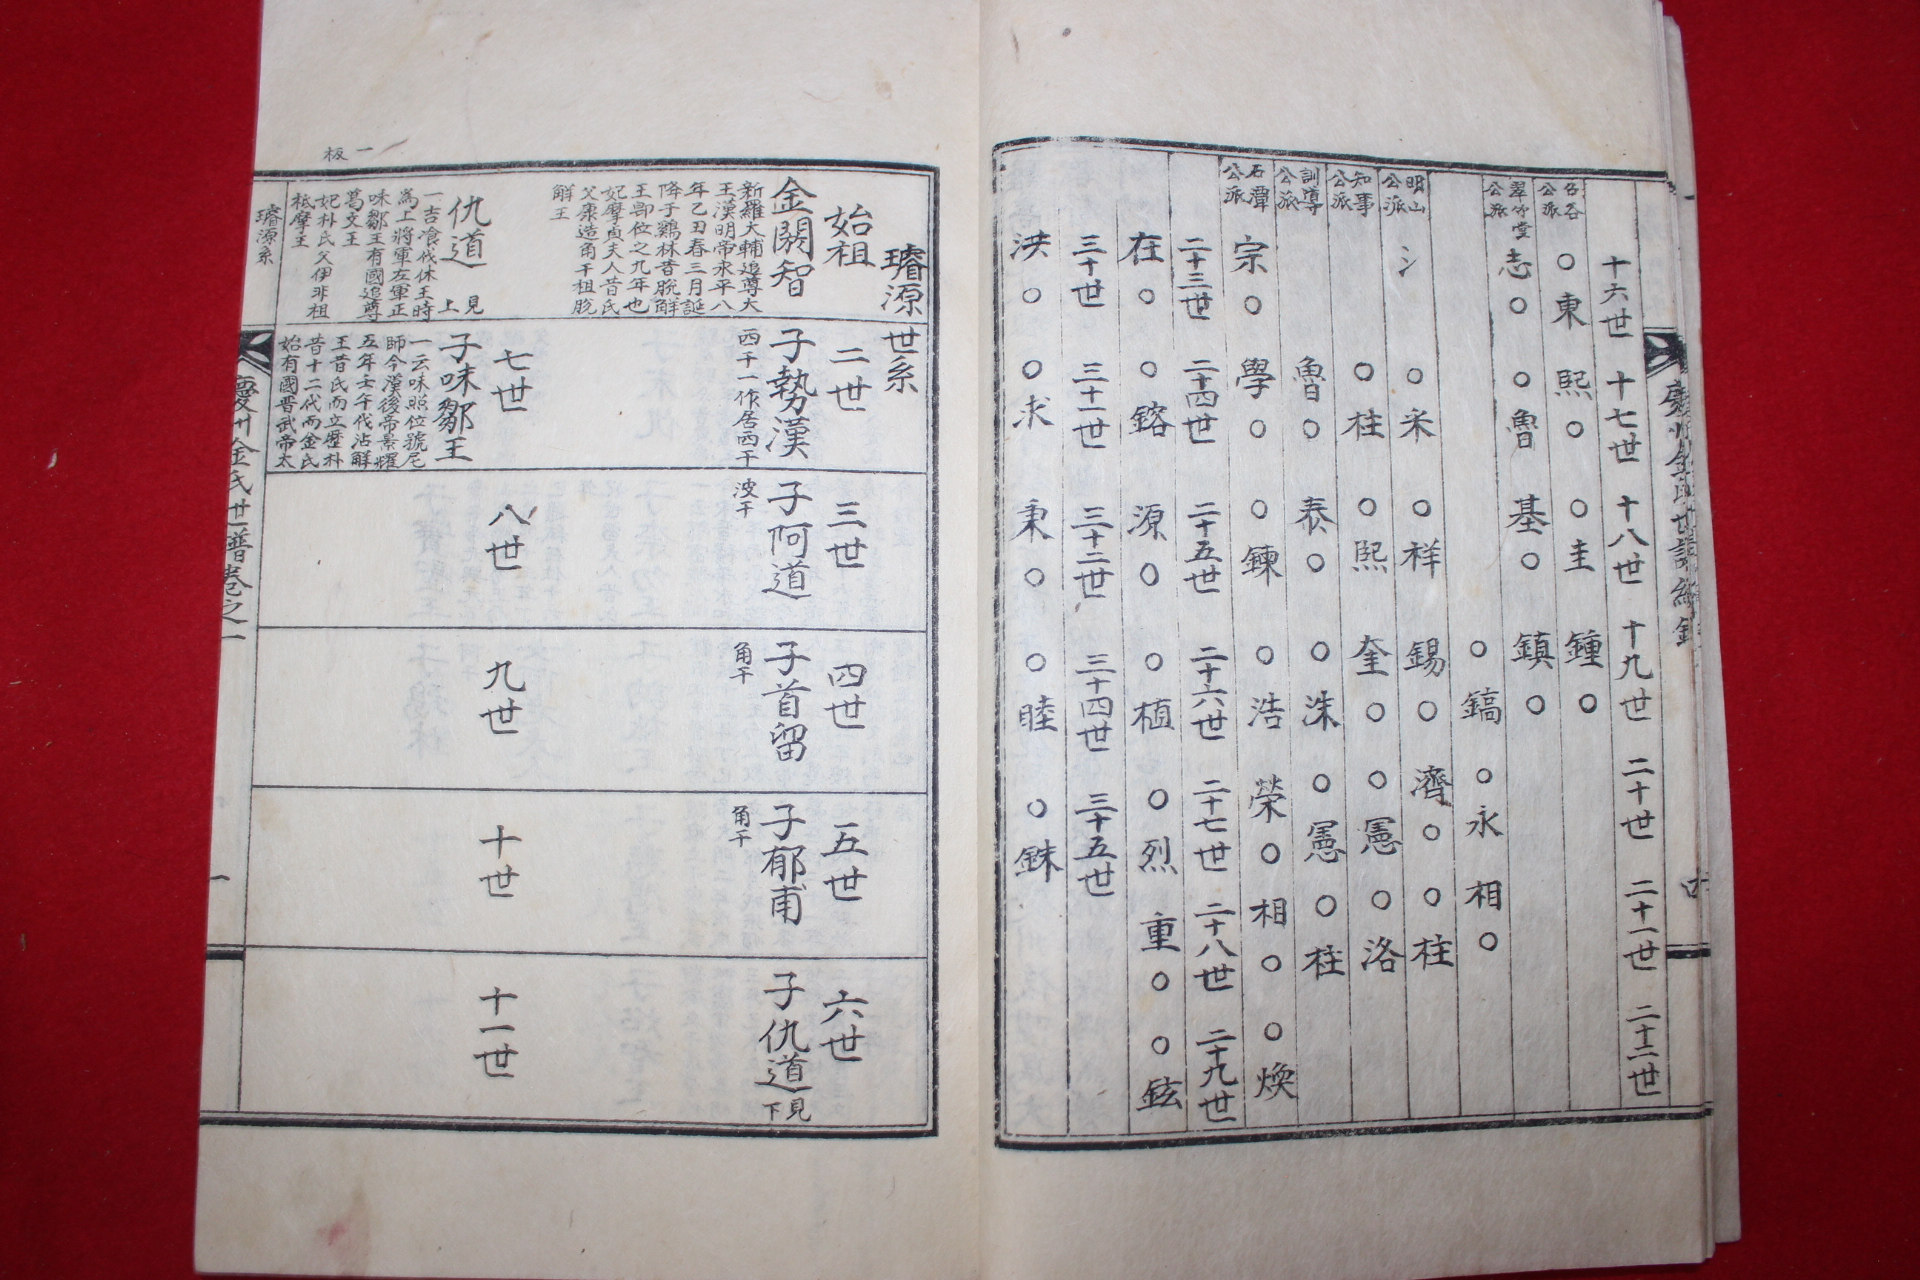 十六世 十七世 十八世 十九世 二十世 二十一世 二十二世
公派 ○東 熙○ ○圭 鍾○
翠竹堂公派 志○ ○魯 基○ 鎮○
○鎬 ○永 相○
明山公派 氵 ○米 ○祥 錫○ 濟○ ○柱
知事公派 ○柱 ○熙 奎○ ○憲 ○洛
訓導公派 魯○ 泰○ ○洙 ○憲 ○柱
石潭公派 宗○ 學○ ○鍊 ○浩 榮○ 相○ ○煥
二十三世 二十四世 二十五世 二十六世 二十七世 二十八世 二十九世
在○ ○鎔 源○ ○植 ○烈 重○ ○鉉
三十世 三十一世 三十二世 三十四世 三十五世
洪○ ○求 秉○ ○睦 ○銖
璿源世系
始祖 二世 三世 四世 五世 六世
金閼智
新羅大輔追尊大
王漢明帝永平八
年乙丑春三月誕
降于鷄林昔脫解
王卽位之九年也
妃摩貞夫人昔氏
父康造角干祖脫
解王
子勢漢
西干一作居西干
子阿道
波干
子首留
角干
子郁甫
角干
子仇道 見下
七世 八世 九世 十世 十一世
仇道 見上
一吉飡伐休王時
爲上將軍左軍正
味鄒王有國追尊
葛文王
妃朴氏父伊非祖
祗摩王
子味鄒王
一云味照位號尼
師今漢後帝景耀
五年壬午代沾解
王昔氏而立歷朴
昔十二代而金氏
始有國晋武帝太
璿源系
一板
慶州金氏世譜卷之一
一